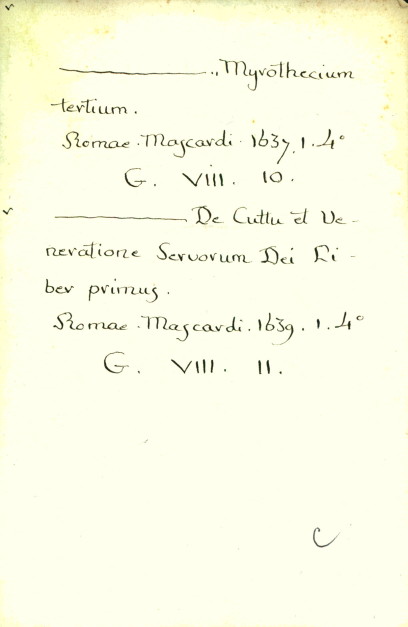 ———— ., Myrothecium
tertium.
Romae. Mascardi. 1637. 1. 4°
G. VIII. 10.
———— De Cultu et Ve-
neratione Servorum Dei Li-
ber primus.
Romae. Mascardi. 1639. 1. 4°
G. VIII. 11.
C